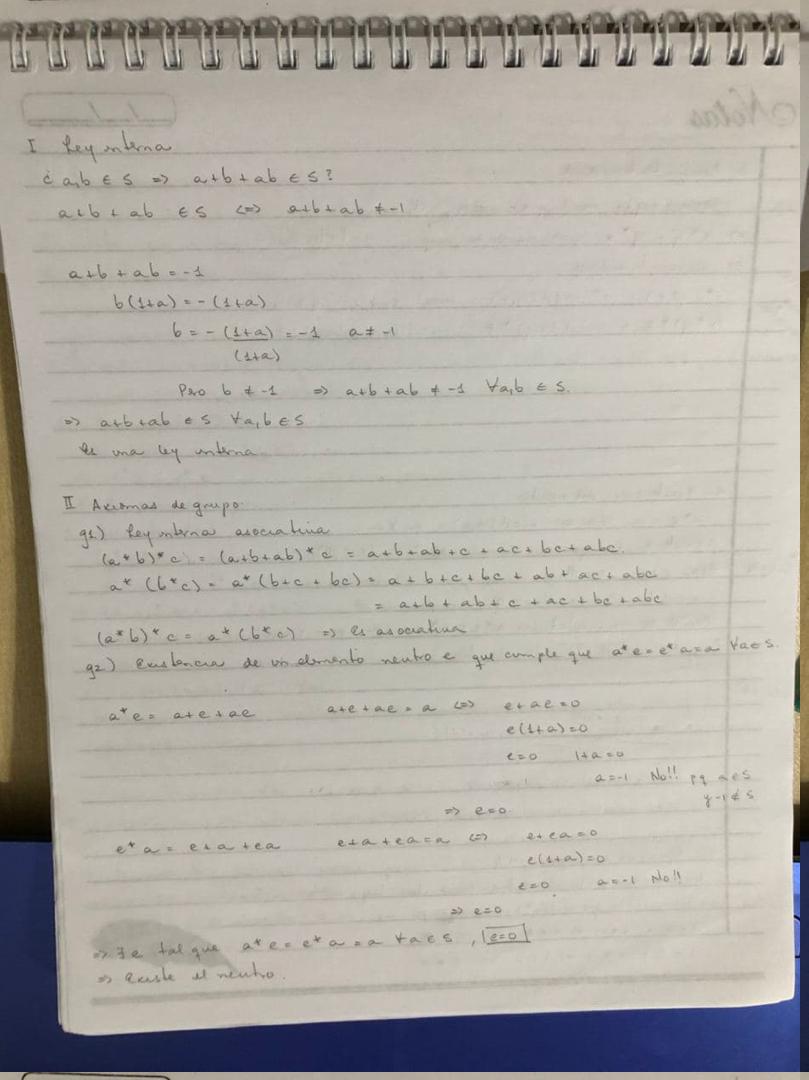 Notas
I Ley interna
¿ a,b ∈ S => a+b+ab ∈ S?
a+b+ab ∈ S <=> a+b+ab ≠ -1
a+b+ab = -1
b(1+a) = -(1+a)
b = -(1+a)/(1+a) = -1 a ≠ -1
Pero b ≠ -1 => a+b+ab ≠ -1 ∀a,b ∈ S.
=> a+b+ab ∈ S ∀a,b ∈ S
Es una ley interna
II Axiomas de grupo.
g1) Ley interna asociativa
(a*b)*c = (a+b+ab)*c = a+b+ab+c+ac+bc+abc.
a*(b*c) = a*(b+c+bc) = a+b+c+bc+ab+ac+abc
= a+b+ab+c+ac+bc+abc
(a*b)*c = a*(b*c) => Es asociativa
g2) Existencia de un elemento neutro e que cumple que a*e=e*a=a ∀a∈S.
a*e = a+e+ae a+e+ae=a <=> e+ae=0
e(1+a)=0
e=0 1+a=0
a=-1 No!! pq a∈S
y -1∉S
=> e=0.
e*a = e+a+ea e+a+ea=a <=> e+ea=0
e(1+a)=0
e=0 a=-1 No!!
=> e=0
=> ∃e tal que a*e=e*a=a ∀a∈S, e=0
=> Existe el neutro.